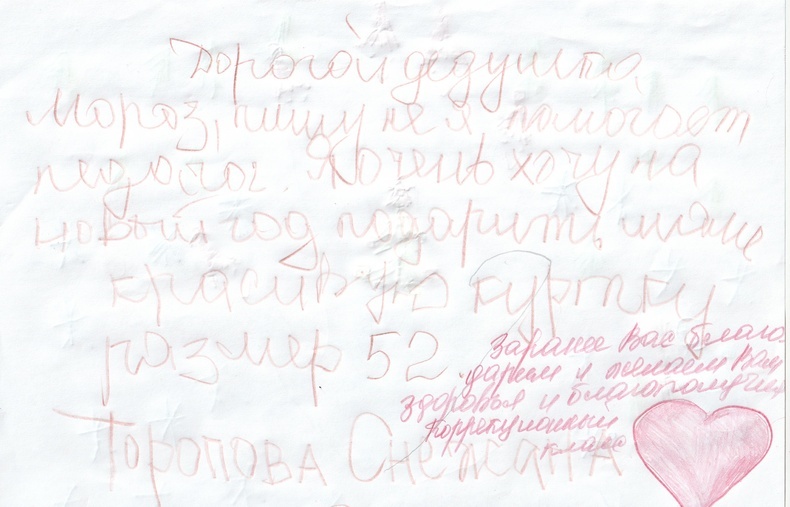 Дорогой дедушка
Мороз, пишу не я помогает
педогог. Я очень хочу на
новый год подарить маме
красивую куртку
размер 52
Заранее Вас благо-
дарим и желаем Вам
здоровья и благополучия
Коррекционный
класс
Торопова Снежана